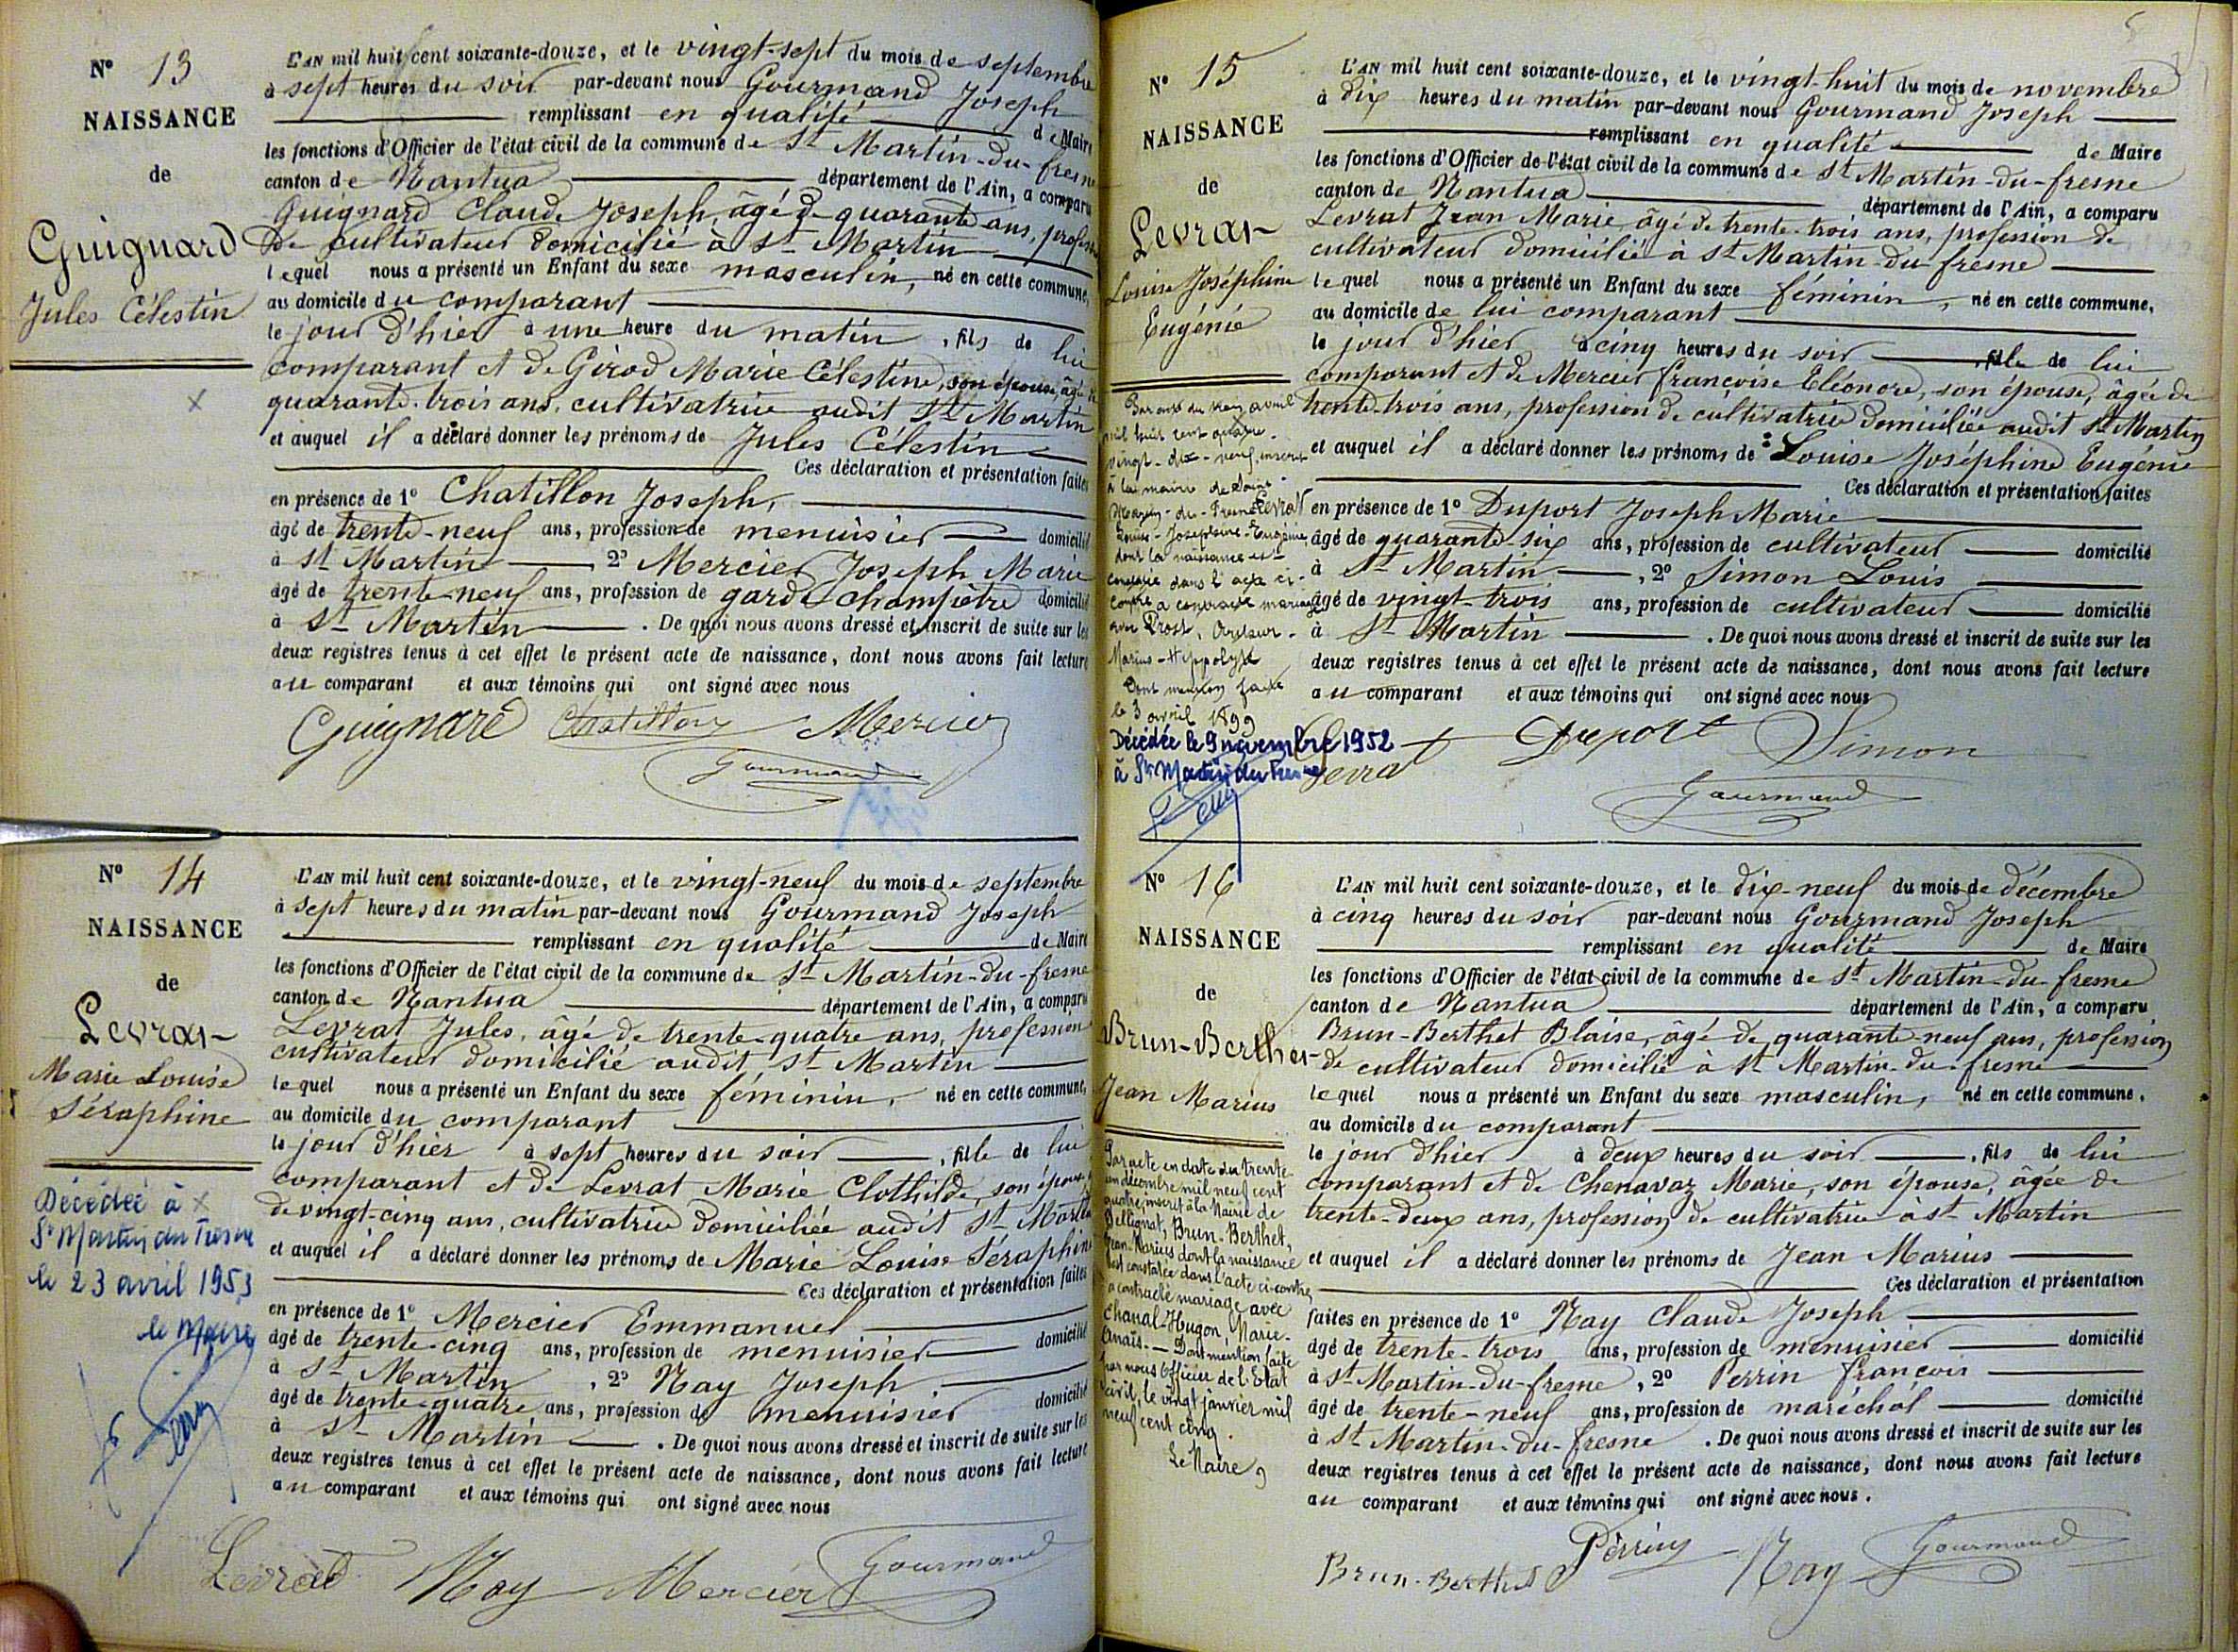 N° 13
NAISSANCE
de
Guignard
Jules Célestin
L'AN mil huit cent soixante-douze, et le vingt-sept du mois de septembre
à sept heures du soir par-devant nous Gourmand Joseph
remplissant en qualité de Maire
les fonctions d'Officier de l'état civil de la commune de St Martin-du-fresne
canton de Nantua département de l'Ain, a comparu
Guignard Claude Joseph, âgé de quarante ans, profession
de cultivateur domicilié à St Martin
lequel nous a présenté un Enfant du sexe masculin, né en cette commune,
au domicile du comparant
le jour d'hier à une heure du matin, fils de lui
comparant et de Girod Marie Célestine, son épouse, âgée de
quarante-trois ans, cultivatrice audit St Martin
et auquel il a déclaré donner les prénoms de Jules Célestin
Ces déclaration et présentation faites
en présence de 1° Chatillon Joseph,
âgé de trente-neuf ans, profession de menuisier domicilié
à St Martin 2° Mercier Joseph Marie
âgé de trente-neuf ans, profession de garde champêtre domicilié
à St Martin. De quoi nous avons dressé et inscrit de suite sur les
deux registres tenus à cet effet le présent acte de naissance, dont nous avons fait lecture
au comparant et aux témoins qui ont signé avec nous
Guignard Chatillon Mercier
Gourmand
N° 14
NAISSANCE
de
Levrat
Marie Louise
Séraphine
Décédée à
St Martin du Fresne
le 23 avril 1953
le Maire
L'AN mil huit cent soixante-douze, et le vingt-neuf du mois de septembre
à sept heures du matin par-devant nous Gourmand Joseph
remplissant en qualité de Maire
les fonctions d'Officier de l'état civil de la commune de St Martin-du-fresne
canton de Nantua département de l'Ain, a comparu
Levrat Jules, âgé de trente-quatre ans, profession
cultivateur domicilié audit St Martin
lequel nous a présenté un Enfant du sexe féminin, né en cette commune,
au domicile du comparant
le jour d'hier à sept heures du soir, fille de lui
comparant et de Levrat Marie Clothilde, son épouse
de vingt-cinq ans, cultivatrice domiciliée audit St Martin
et auquel il a déclaré donner les prénoms de Marie Louise Séraphine
Ces déclaration et présentation faites
en présence de 1° Mercier Emmanuel
âgé de trente-cinq ans, profession de menuisier domicilié
à St Martin, 2° Nay Joseph,
âgé de trente-quatre ans, profession de menuisier domicilié
à St Martin. De quoi nous avons dressé et inscrit de suite sur les
deux registres tenus à cet effet le présent acte de naissance, dont nous avons fait lecture
au comparant et aux témoins qui ont signé avec nous
Levrat Nay Mercier Gourmand
N° 15
NAISSANCE
de
Levrat
Louise Joséphine
Eugénie
Par acte du avril
mil huit cent quatre-
vingt-dix-neuf, inscrit
à la mairie de Saint-
Martin-du-Fresne Levrat
Louise-Joséphine-Eugénie,
dont la naissance est
constatée dans l'acte ci-
contre a contracté mariage
avec Prost,
Marius-Hippolyte
Dont mention faite
le 3 avril 1899
Décédée le 9 novembre 1952
à St Martin du Fresne
L'AN mil huit cent soixante-douze, et le vingt-huit du mois de novembre
à dix heures du matin par-devant nous Gourmand Joseph
remplissant en qualité de Maire
les fonctions d'Officier de l'état civil de la commune de St Martin-du-fresne
canton de Nantua département de l'Ain, a comparu
Levrat Jean Marie, âgé de trente-trois ans, profession de
cultivateur domicilié à St Martin-du-fresne
lequel nous a présenté un Enfant du sexe féminin, né en cette commune,
au domicile de lui comparant
le jour d'hier à cinq heures du soir, fille de lui
comparant et de Mercier françoise Eléonore, son épouse, âgée de
trente-trois ans, profession de cultivatrice domiciliée audit St Martin
et auquel il a déclaré donner les prénoms de : Louise Joséphine Eugénie
Ces déclaration et présentation faites
en présence de 1° Duport Joseph Marie
âgé de quarante-six ans, profession de cultivateur domicilié
à St Martin, 2° Simon Louis
âgé de vingt-trois ans, profession de cultivateur domicilié
à St Martin. De quoi nous avons dressé et inscrit de suite sur les
deux registres tenus à cet effet le présent acte de naissance, dont nous avons fait lecture
au comparant et aux témoins qui ont signé avec nous
Levrat Duport Simon
Gourmand
N° 16
NAISSANCE
de
Brun-Berthet
Jean Marius
Par acte en date du trente
un décembre mil neuf cent
quatre, inscrit à la Mairie de
Bellignat, Brun-Berthet,
Jean-Marius dont la naissance
est constatée dans l'acte ci-contre
a contracté mariage avec
Chanal-Hugon, Marie-
Anaïs.— Dont mention faite
par nous Officier de l'Etat
civil, le vingt janvier mil
neuf cent cinq.
Le Maire,
L'AN mil huit cent soixante-douze, et le dix-neuf du mois de décembre
à cinq heures du soir par-devant nous Gourmand Joseph
remplissant en qualité de Maire
les fonctions d'Officier de l'état civil de la commune de St Martin-du-fresne
canton de Nantua département de l'Ain, a comparu
Brun-Berthet Blaise, âgé de quarante-neuf ans, profession
de cultivateur domicilié à St Martin-du-fresne
lequel nous a présenté un Enfant du sexe masculin, né en cette commune,
au domicile du comparant
le jour d'hier à deux heures du soir, fils de lui
comparant et de Chenavaz Marie, son épouse, âgée de
trente-deux ans, profession de cultivatrice à St Martin
et auquel il a déclaré donner les prénoms de Jean Marius
Ces déclaration et présentation
faites en présence de 1° Nay Claude Joseph
âgé de trente-trois ans, profession de menuisier domicilié
à St Martin-du-fresne, 2° Perrin françois
âgé de trente-neuf ans, profession de maréchal domicilié
à St Martin-du-fresne. De quoi nous avons dressé et inscrit de suite sur les
deux registres tenus à cet effet le présent acte de naissance, dont nous avons fait lecture
au comparant et aux témoins qui ont signé avec nous.
Brun-Berthet Perrin Nay Gourmand